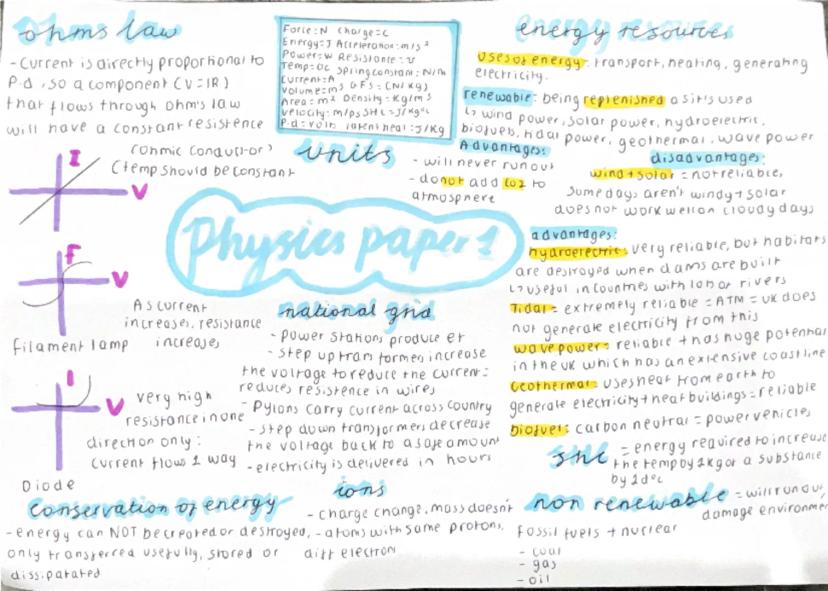 ohms law
- Current is directly proportional to
P.d, so a component (V=IR)
that flows through Ohm's law
will have a constant resistence
(ohmic conductor)
(temp should be constant
I
V
F
V
As current
increases, resistance
increases
Filament lamp
I
V
very high
resistance in one
direction only:
current flows 1 way
Diode
Conservation of energy
- energy can NOT be created or destroyed,
only transferred usefully, stored or
dissipatated
Force: N Charge = C
Energy = J Acceleration: m/s²
Power = W Resistance:
Temp = °C Spring constant: N/m
Current = A
Volume = m³ GFS = (N/kg)
Area = m² Density = Kg/m³
Velocity: m/s SHC = J/kg°C
P.d = volts latent heat: J/Kg
units
Physics paper 1
national grid
- Power stations produce
- Step up transformers increase
the voltage to reduce the current =
reduces resistence in wires
- Pylons carry current across country
- step down transformers decrease
the voltage back to a safe amount
- electricity is delivered in hours
ions
- charge change, mass doesn't
- atoms with same protons,
diff electron
energy resources
uses of energy: transport, heating, generating
electricity.
renewable: being replenished as it's used
↳ wind power, solar power, hydroelectric,
biofuels, tidal power, geothermal, wave power
Advantages:
- will never run out
- do not add CO2 to
atmosphere
disadvantages:
wind + solar = not reliable,
some days aren't windy + solar
does not work well on cloudy days
advantages:
hydroelectric: very reliable, but habitats
are destroyed when dams are built
↳ useful in countries with rivers
Tidal = extremely reliable = ATM = UK does
not generate electricity from this
wave power: reliable + has huge potential
in the uk which has an extensive coastline
Geothermal: uses heat from earth to
generate electricity + heat buildings = reliable
biofuel: carbon neutral = power vehicles
SHC = energy required to increase
the temp by 1kg of a substance
by 1
non renewable = will run out,
damage environment
Fossil fuels + nuclear
- coal
- gas
- oil